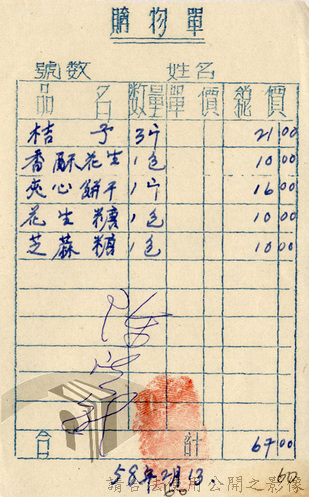 購物單
號數 姓名
品名 数量 單價 總價
桔子 3斤 21 00
香酥花生 1包 10 00
夾心餅干 1斤 16 00
花生糖 1包 10 00
芝蔴糖 1包 10 00
合計 67 00
58年2月13.